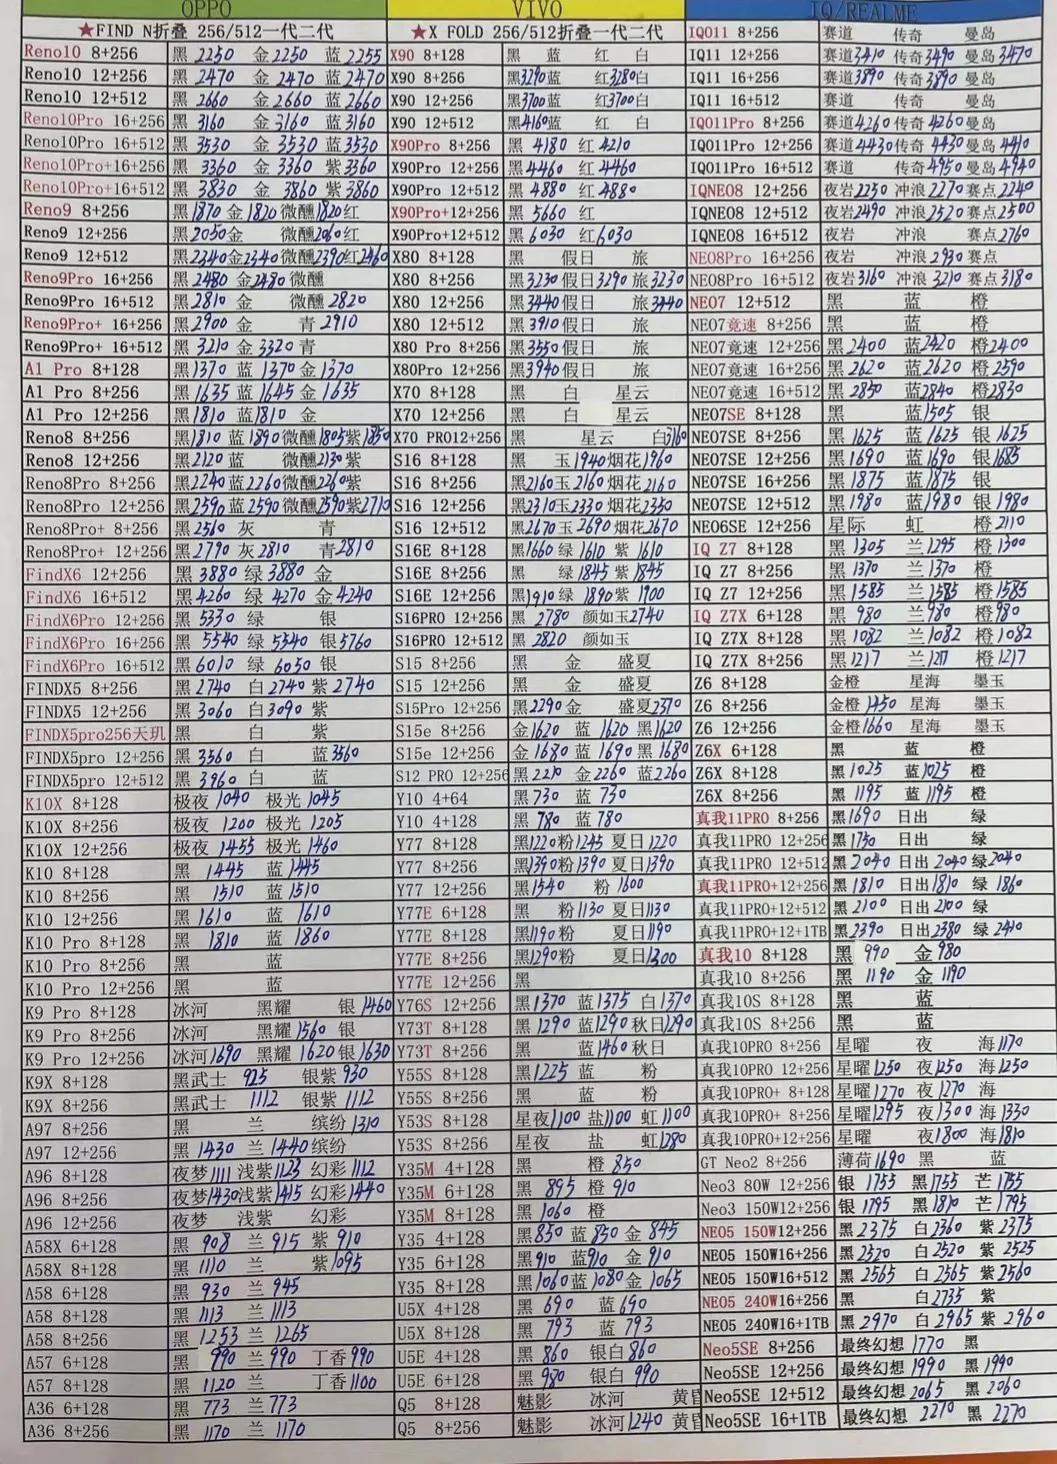 OPPO VIVO IQ/REALME
★FIND N折叠 256/512一代二代 ★X FOLD 256/512折叠一代二代 IQO11 8+256 赛道 传奇 曼岛
Reno10 8+256 黑 2250 金 2250 蓝 2255 X90 8+128 黑 蓝 红 白 IQ11 12+256 赛道 3410 传奇 3490 曼岛 3470
Reno10 12+256 黑 2470 金 2470 蓝 2470 X90 8+256 黑 3290 蓝 红 3280 白 IQ11 16+256 赛道 3890 传奇 3890 曼岛
Reno10 12+512 黑 2660 金 2660 蓝 2660 X90 12+256 黑 3700 蓝 红 3700 白 IQ11 16+512 赛道 传奇 曼岛
Reno10Pro 16+256 黑 3160 金 3160 蓝 3160 X90 12+512 黑 4160 蓝 红 白 IQO11Pro 8+256 赛道 4260 传奇 4260 曼岛
Reno10Pro 16+512 黑 3530 金 3530 蓝 3530 X90Pro 8+256 黑 4180 红 4210 IQO11Pro 12+256 赛道 4430 传奇 4430 曼岛 4410
Reno10Pro+16+256 黑 3360 金 3360 紫 3360 X90Pro 12+256 黑 4460 红 4460 IQO11Pro 16+512 赛道 传奇 4950 曼岛 4940
Reno10Pro+16+512 黑 3830 金 3860 紫 3860 X90Pro 12+512 黑 4880 红 4880 IQNEO8 12+256 夜岩 2250 冲浪 2270 赛点 2240
Reno9 8+256 黑 1870 金 1820 微醺 1820 红 X90Pro+12+256 黑 5660 红 IQNEO8 12+512 夜岩 2490 冲浪 2520 赛点 2500
Reno9 12+256 黑 2050 金 微醺 2060 红 X90Pro+12+512 黑 6030 红 6030 IQNEO8 16+512 夜岩 冲浪 赛点 2760
Reno9 12+512 黑 2340 金 2340 微醺 2390 红 2460 X80 8+128 黑 假日 旅 NEO8Pro 16+256 夜岩 冲浪 2930 赛点
Reno9Pro 16+256 黑 2480 金 2480 微醺 X80 8+256 黑 3230 假日 3290 旅 3230 NEO8Pro 16+512 夜岩 3160 冲浪 3210 赛点 3180
Reno9Pro 16+512 黑 2810 金 微醺 2820 X80 12+256 黑 3440 假日 旅 3440 NEO7 12+512 黑 蓝 橙
Reno9Pro+ 16+256 黑 2900 金 青 2910 X80 12+512 黑 3910 假日 旅 NEO7竟速 8+256 黑 蓝 橙
Reno9Pro+ 16+512 黑 3210 金 3320 青 X80 Pro 8+256 黑 3550 假日 旅 NEO7竟速 12+256 黑 2400 蓝 2420 橙 2400
A1 Pro 8+128 黑 1370 蓝 1370 金 1370 X80Pro 12+256 黑 3940 假日 旅 NEO7竟速 16+256 黑 2620 蓝 2620 橙 2590
A1 Pro 8+256 黑 1635 蓝 1645 金 1635 X70 8+128 黑 白 星云 NEO7竟速 16+512 黑 2850 蓝 2840 橙 2830
A1 Pro 12+256 黑 1810 蓝 1810 金 X70 12+256 黑 白 星云 NEO7SE 8+128 黑 蓝 1505 银
Reno8 8+256 黑 1810 蓝 1890 微醺 1805 紫 1850 X70 PRO12+256 黑 星云 白 3160 NEO7SE 8+256 黑 1625 蓝 1625 银 1625
Reno8 12+256 黑 2120 蓝 微醺 2130 紫 S16 8+128 黑 玉 1940 烟花 1960 NEO7SE 12+256 黑 1690 蓝 1690 银 1685
Reno8Pro 8+256 黑 2240 蓝 2260 微醺 2260 紫 S16 8+256 黑 2160 玉 2160 烟花 2160 NEO7SE 16+256 黑 1875 蓝 1875
Reno8Pro 12+256 黑 2590 蓝 2590 微醺 2590 紫 2710 S16 12+256 黑 2310 玉 2330 烟花 2350 NEO7SE 12+512 黑 1980 蓝 1980 银 1980
Reno8Pro+ 8+256 黑 2560 灰 青 S16 12+512 黑 2670 玉 2690 烟花 2670 NEO6SE 12+256 星际 虹 橙 2110
Reno8Pro+ 12+256 黑 2790 灰 2810 青 2810 S16E 8+128 黑 1660 绿 1610 紫 1610 IQ Z7 8+128 黑 1305 兰 1295 橙 1300
FindX6 12+256 黑 3880 绿 3880 金 S16E 8+256 黑 绿 1845 紫 1845 IQ Z7 8+256 黑 1370 兰 1370 橙
FindX6 16+512 黑 4260 绿 4270 金 4240 S16E 12+256 黑 1910 绿 1890 紫 1900 IQ Z7 12+256 黑 1585 兰 1585 橙 1585
FindX6Pro 12+256 黑 5330 绿 银 S16PRO 12+256 黑 2780 颜如玉 2740 IQ Z7X 6+128 黑 980 兰 980 橙 980
FindX6Pro 16+256 黑 5540 绿 5540 银 5760 S16PRO 12+512 黑 2820 颜如玉 IQ Z7X 8+128 黑 1082 兰 1082 橙 1082
FindX6Pro 16+512 黑 6010 绿 6050 银 S15 8+256 黑 金 盛夏 IQ Z7X 8+256 黑 1217 兰 1217 橙 1217
FINDX5 8+256 黑 2740 白 2740 紫 2740 S15 12+256 黑 金 盛夏 Z6 8+128 金橙 星海 墨玉
FINDX5 12+256 黑 3060 白 3090 紫 S15Pro 12+256 黑 2290 金 盛夏 2370 Z6 8+256 金橙 1450 星海 墨玉
FINDX5pro256天玑 黑 白 紫 S15e 8+256 金 1620 蓝 1620 黑 1620 Z6 12+256 金橙 1660 星海 墨玉
FINDX5pro 12+256 黑 3560 白 蓝 3560 S15e 12+256 金 1680 蓝 1690 黑 1680 Z6X 6+128 黑 蓝 橙
FINDX5pro 12+512 黑 3960 白 蓝 S12 PRO 12+256 黑 2210 金 2260 蓝 2260 Z6X 8+128 黑 1025 蓝 1025 橙
K10X 8+128 极夜 1040 极光 1045 Y10 4+64 黑 730 蓝 730 Z6X 8+256 黑 1195 蓝 1195 橙
K10X 8+256 极夜 1200 极光 1205 Y10 4+128 黑 780 蓝 780 真我11PRO 8+256 黑 1690 日出 绿
K10X 12+256 极夜 1455 极光 1460 Y77 8+128 黑 1220 粉 1245 夏日 1220 真我11PRO 12+256 黑 1750 日出 绿
K10 8+128 黑 1445 蓝 1445 Y77 8+256 黑 1390 粉 1390 夏日 1390 真我11PRO 12+512 黑 2040 日出 2040 绿 2040
K10 8+256 黑 1510 蓝 1510 Y77 12+256 黑 1540 粉 1600 真我11PRO+12+256 黑 1810 日出 1810 绿 1860
K10 12+256 黑 1610 蓝 1610 Y77E 6+128 黑 粉 1130 夏日 1130 真我11PRO+12+512 黑 2100 日出 2100 绿
K10 Pro 8+128 黑 1810 蓝 1860 Y77E 8+128 黑 1190 粉 夏日 1190 真我11PRO+12+1TB 黑 2390 日出 2380 绿 2410
K10 Pro 8+256 黑 蓝 Y77E 8+256 黑 1290 粉 夏日 1300 真我10 8+128 黑 990 金 980
K10 Pro 12+256 黑 蓝 Y77E 12+256 黑 真我10 8+256 黑 1190 金 1190
K9 Pro 8+128 冰河 黑耀 银 1460 Y76S 12+256 黑 1370 蓝 1375 白 1370 真我10S 8+128 黑 蓝
K9 Pro 8+256 冰河 黑耀 1560 银 Y73T 8+128 黑 1290 蓝 1290 秋日 1290 真我10S 8+256 黑 蓝
K9 Pro 12+256 冰河 1690 黑耀 1620 银 1630 Y73T 8+256 黑 蓝 1460 秋日 真我10PRO 8+256 星曜 夜 海 1170
K9X 8+128 黑武士 925 银紫 930 Y55S 8+128 黑 1225 蓝 粉 真我10PRO 12+256 星曜 1250 夜 1250 海 1250
K9X 8+256 黑武士 1112 银紫 1112 Y55S 8+256 黑 蓝 粉 真我10PRO+ 8+128 星曜 1270 夜 1270 海
A97 8+256 黑 兰 缤纷 1310 Y53S 8+128 星夜 1100 盐 1100 虹 1100 真我10PRO+ 8+256 星曜 1295 夜 1300 海 1330
A97 12+256 黑 1430 兰 1440 缤纷 Y53S 8+256 星夜 盐 虹 1280 真我10PRO+12+256 星曜 夜 1800 海 1810
A96 8+128 夜梦 1111 浅紫 1123 幻彩 1112 Y35M 4+128 黑 橙 850 GT Neo2 8+256 薄荷 1690 黑 蓝
A96 8+256 夜梦 1430 浅紫 1415 幻彩 1440 Y35M 6+128 黑 895 橙 910 Neo3 80W 12+256 银 1755 黑 1755 芒 1755
A96 12+256 夜梦 浅紫 幻彩 Y35M 8+128 黑 1060 橙 Neo3 150W12+256 银 1795 黑 1810 芒 1795
A58X 6+128 黑 908 兰 915 紫 910 Y35 4+128 黑 850 蓝 850 金 845 NEO5 150W12+256 黑 2375 白 2360 紫 2375
A58X 8+128 黑 1110 兰 紫 1095 Y35 6+128 黑 910 蓝 910 金 910 NEO5 150W16+256 黑 2520 白 2520 紫 2525
A58 6+128 黑 930 兰 945 Y35 8+128 黑 1060 蓝 1080 金 1065 NEO5 150W16+512 黑 2565 白 2565 紫 2560
A58 8+128 黑 1113 兰 1113 U5X 4+128 黑 690 蓝 690 NEO5 240W16+256 黑 白 2735 紫
A58 8+256 黑 1253 兰 1265 U5X 8+128 黑 793 蓝 793 NEO5 240W16+1TB 黑 2970 白 2965 紫 2960
A57 6+128 黑 990 兰 990 丁香 990 U5E 4+128 黑 860 银白 860 Neo5SE 8+256 最终幻想 1770 黑
A57 8+128 黑 1120 兰 丁香 1100 U5E 6+128 黑 980 银白 990 Neo5SE 12+256 最终幻想 1990 黑 1990
A36 6+128 黑 773 兰 773 Q5 8+128 魅影 冰河 黄昏 Neo5SE 12+512 最终幻想 2065 黑 2060
A36 8+256 黑 1170 兰 1170 Q5 8+256 魅影 冰河 1240 黄昏 Neo5SE 16+1TB 最终幻想 2270 黑 2270